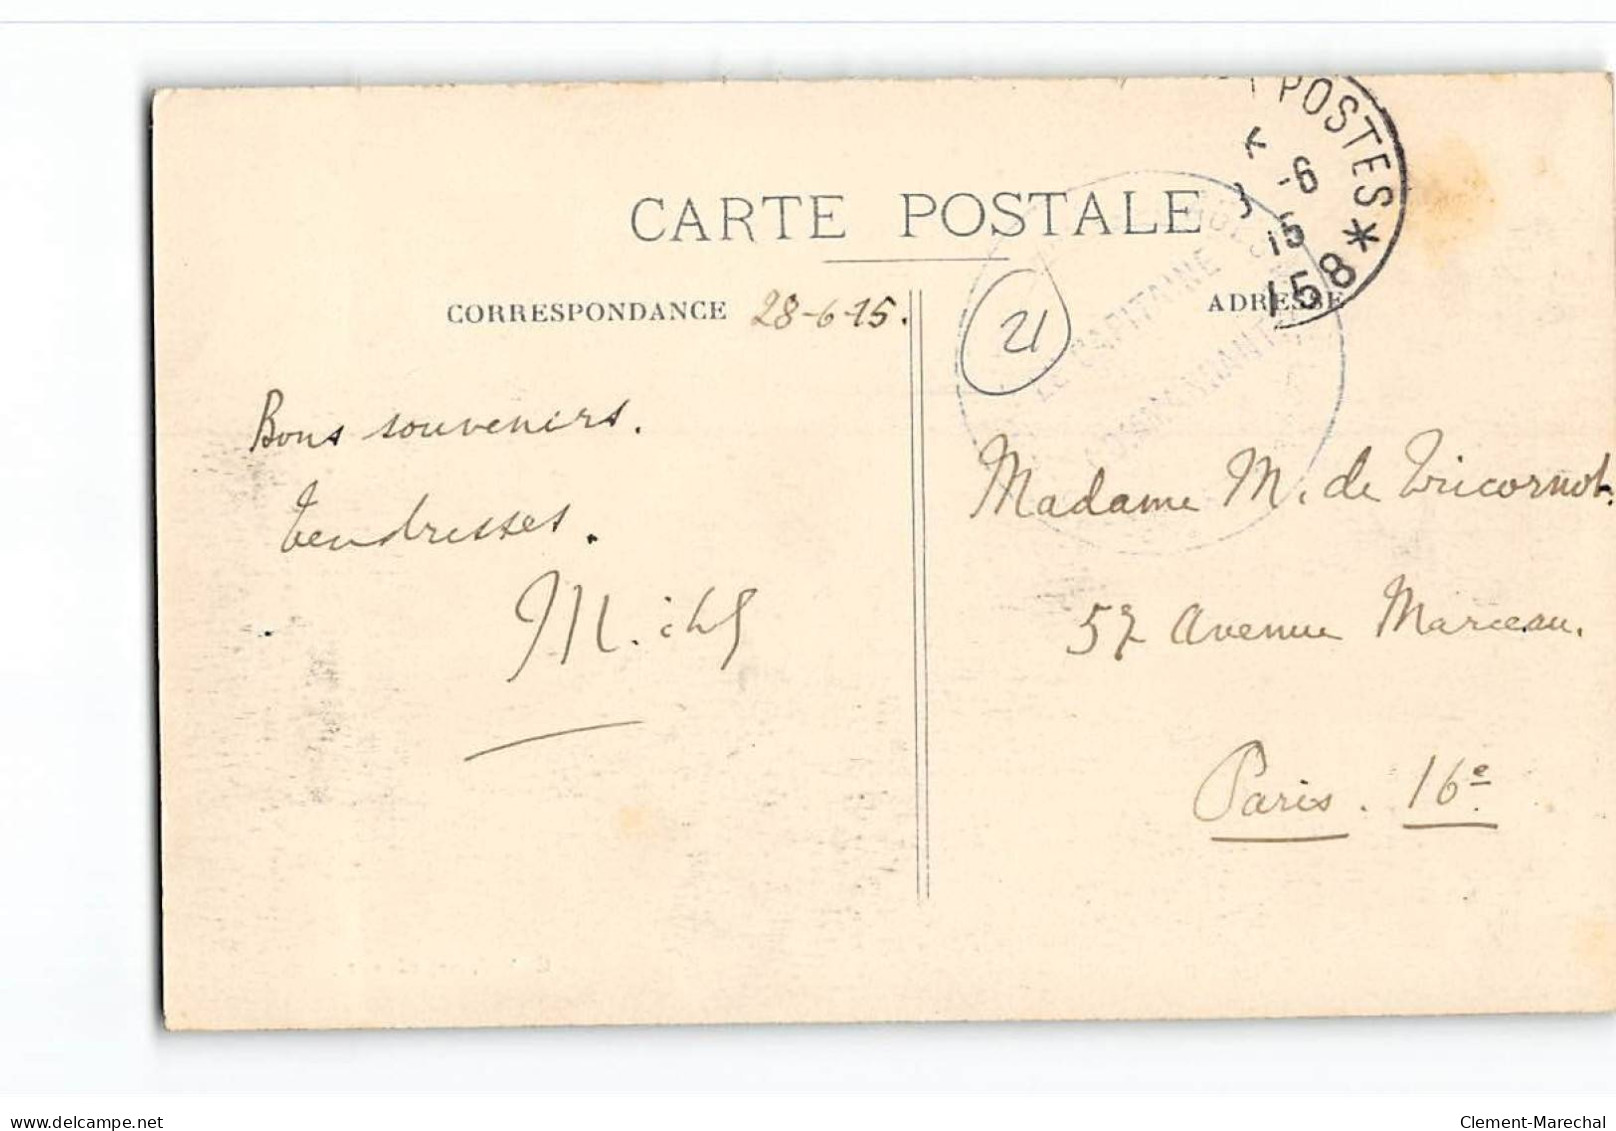 POSTES
-6
15
158
CARTE POSTALE
CORRESPONDANCE 28-6-15.
ADRESSE
21
LE CAPITAINE
COMMANDANT
Bons souvenirs.
Tendresses.
Madame M. de Tricornot.
57 Avenue Marceau.
Paris. 16e
www.delcampe.net
Clement-Marechal